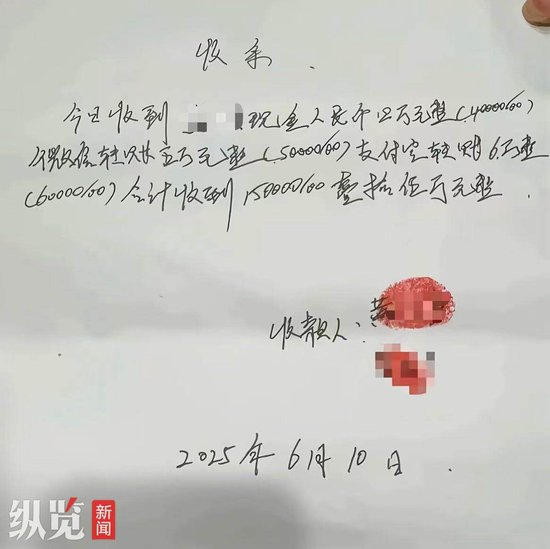 收条.
今日收到 现金人民币四万元整(40000.00)
微信转账五万元整(50000.00)支付宝转账6万整
(60000.00)合计收到150000.00壹拾伍万元整
收款人:黄
2025年6月10日.
纵览
新闻